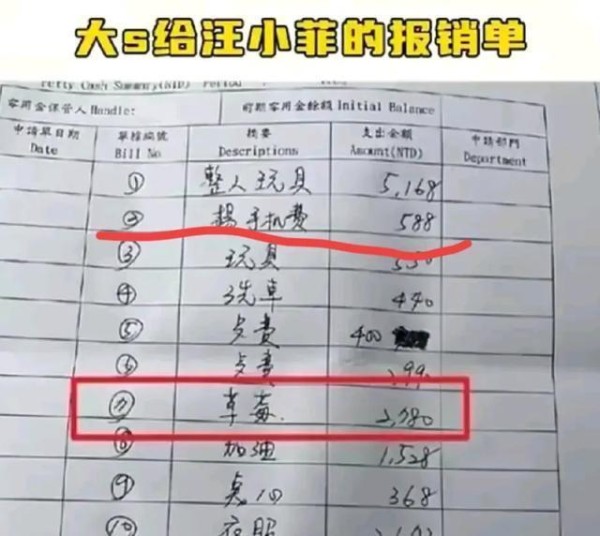 大s给汪小菲的报销单
Petty Cash Summary(NTD) Period
零用金保管人 Handle: 前期零用金餘額 Initial Balance
申請單日期 單據編號 摘要 支出金額 申請部門
Date Bill No Descriptions Amount(NTD) Department
① 整人玩具 5,168
② 楊手机費 588
③ 玩具 550
④ 洗車 440
⑤ 点費 400
⑥ 点費
⑦ 草莓 2,780
⑧ 加油 1,528
⑨ 点心 368
⑩ 衣服